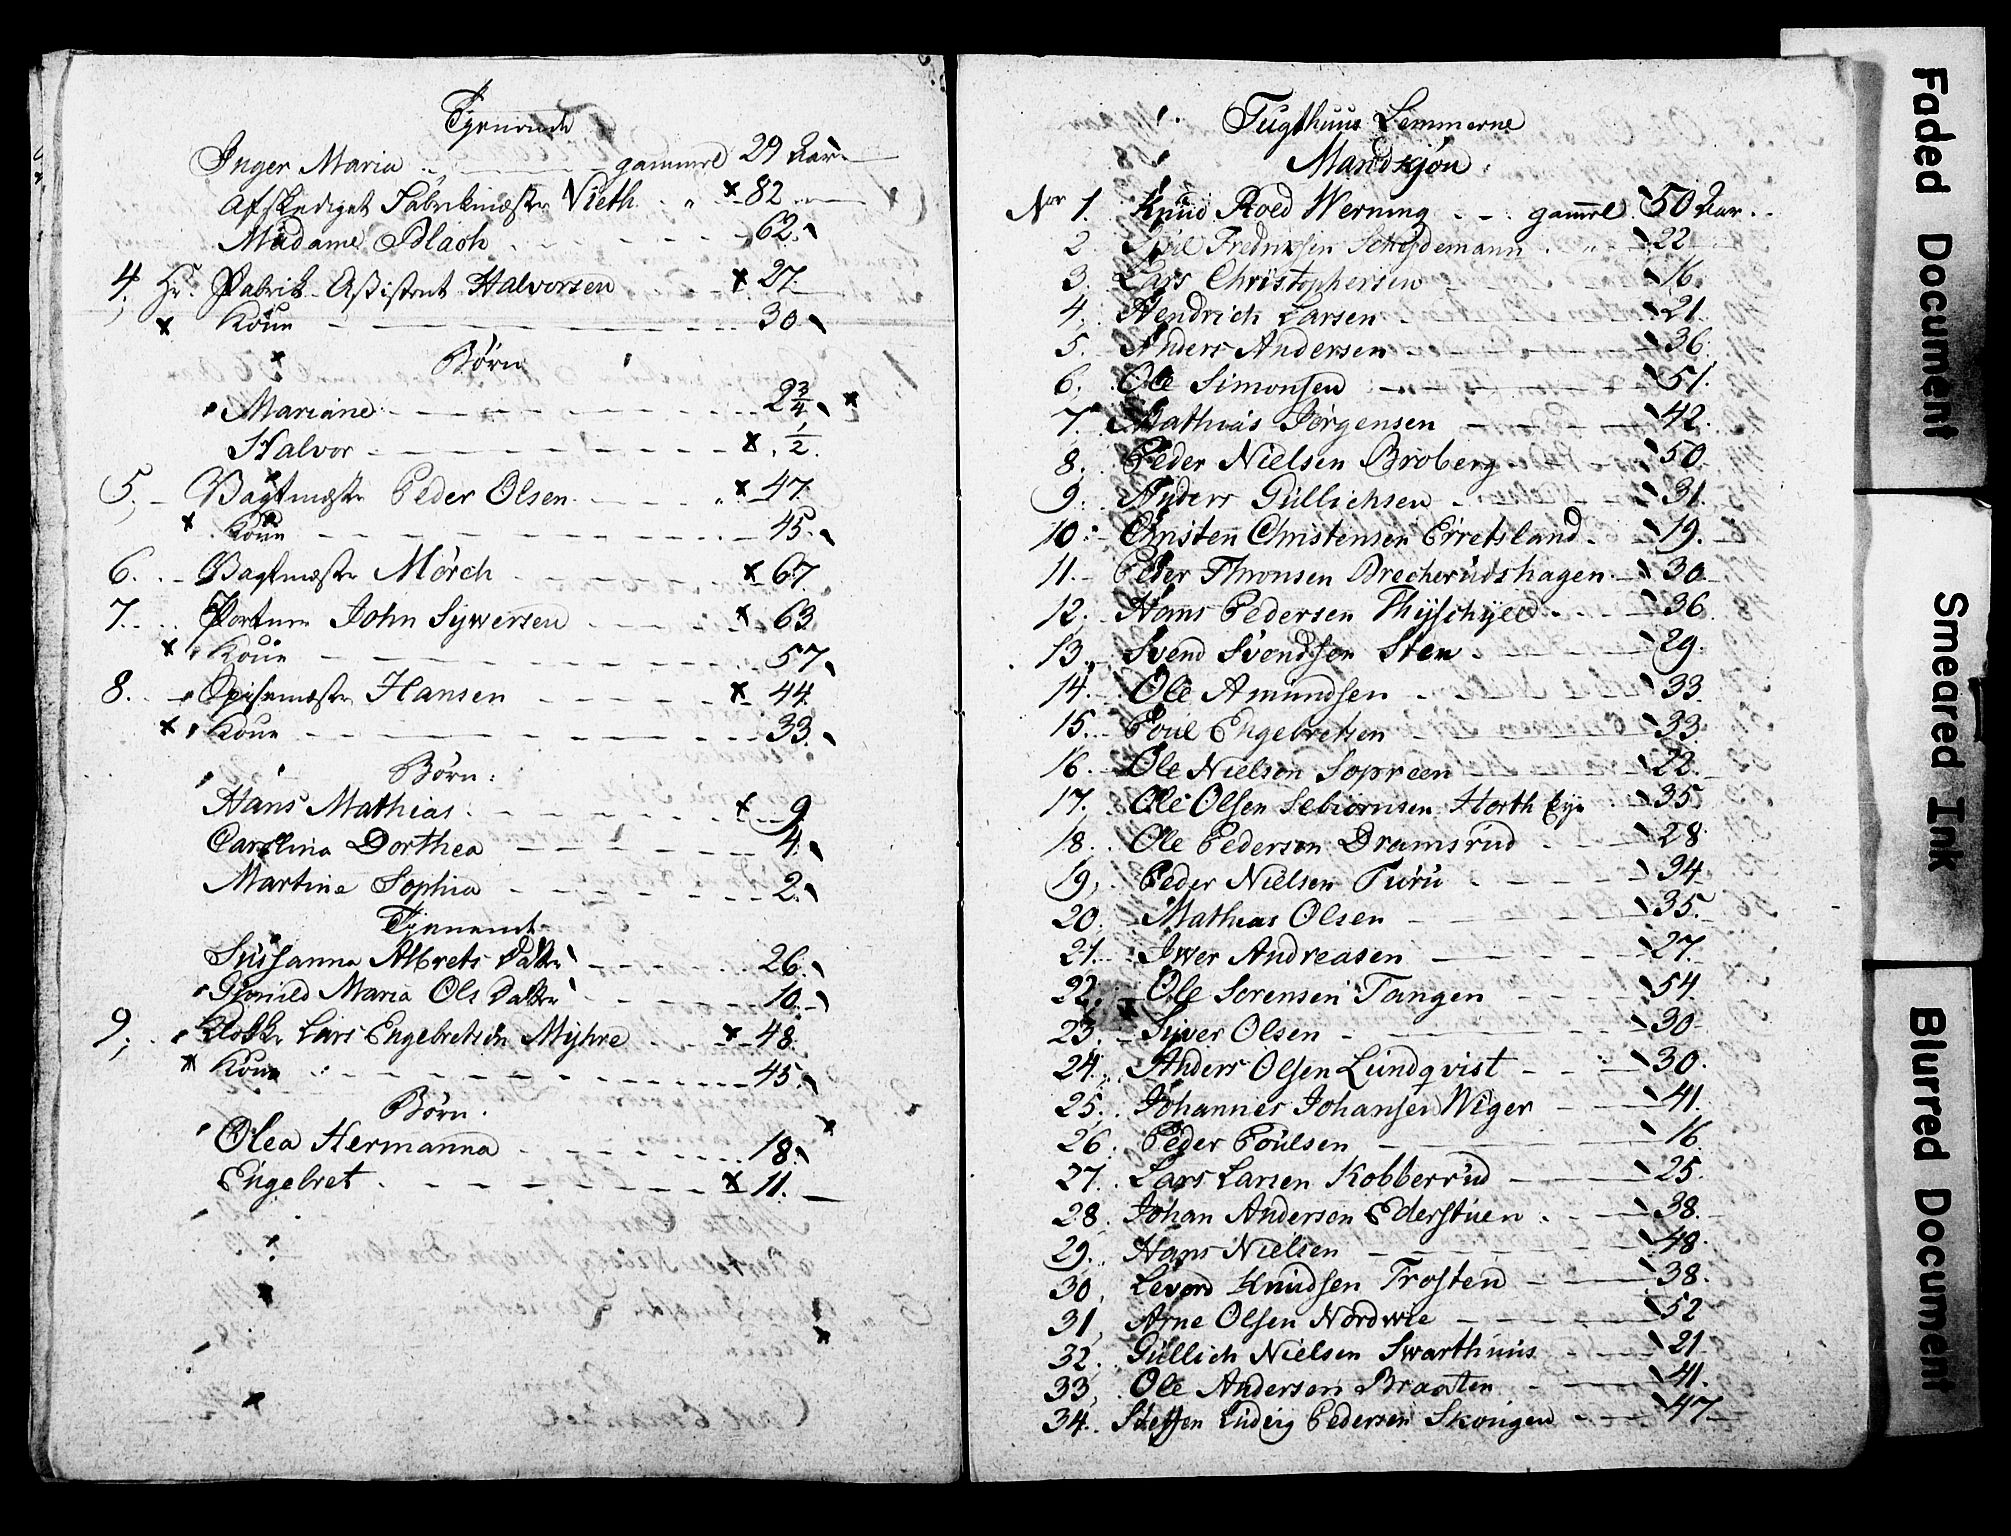 Tjenende
Inger Maria gammel 29 Aar
Afskediget Fabrikmæster Vieth " x 82
Madame Blach 62
4, Hr. Fabrik Assistent Halvorsen x 27
x Kone 30
Børn
Mariane 2 3/4 x
Halvor x 1/2
5, Vagtmæster Peder Olsen x 47
x Kone 45
6. Vagtmæster Mörch x 67
7. Portner John Sywersen x 63
x Kone 57
8. Spisemæster Hansen x 44
x Kone 33
Børn:
Hans Mathias x 9
Carolina Dorthea 4
Martine Sophia 2
Tjenende
Susanna Albrets Datter 26
Maria Ols Datter 10
9, Klokker Lars Engebretsen Myhre x 48
x Kone 45
Børn.
Olea Hermanna 18
Engebret x 11.
Tugthuus Lemmerne
Mandkjøn
Nor 1. Knud Roed Werning gammel 50 Aar
2. Fredrichsen Scheydemann " 22
3. Lars Christophersen 16
4. Hendrich Larsen 21
5. Anders Andersen 36
6. Ole Simonsen 51.
7. Mathias Jörgensen 42.
8. Peder Nielsen Broberg 50
9. Anders Gullichsen 31
10. Christen Christensen Erretsland 19.
11. Peder Thronsen Brecherudshagen 30
12. Hans Pedersen 36
13. Svend Svendsen Sten 29.
14. Ole Amundsen 33
15. Poul Engebretsen 33
16. Ole Nielsen Sopreen 22.
17. Ole Olsen Sebiornsen Horth Eje 35
18. Ole Pedersen Dramsrud 28
19, Peder Nielsen Turu 34
20. Mathias Olsen 35.
21. Iwer Andreasen 27.
22. Ole Sorensen Tangen 54.
23. Siver Olsen 30
24. Anders Olsen Lundqvist 30.
25. Johannes Johansen Weger 41
26. Peder Poulsen 16
27. Lars Larsen Kobberrud 25.
28. Johan Andersen Ederstuen 38.
29. Hans Nielsen 48.
30, Levord Knudsen Trosten 38.
31, Arne Olsen Nordwie 52
32. Gullich Nielsen Swarthuus 21
33, Ole Andersen Braaten 41.
34. Steffen Ludvig Pedersen Skougen 47
Faded Document
Smeared Ink
Blurred Document